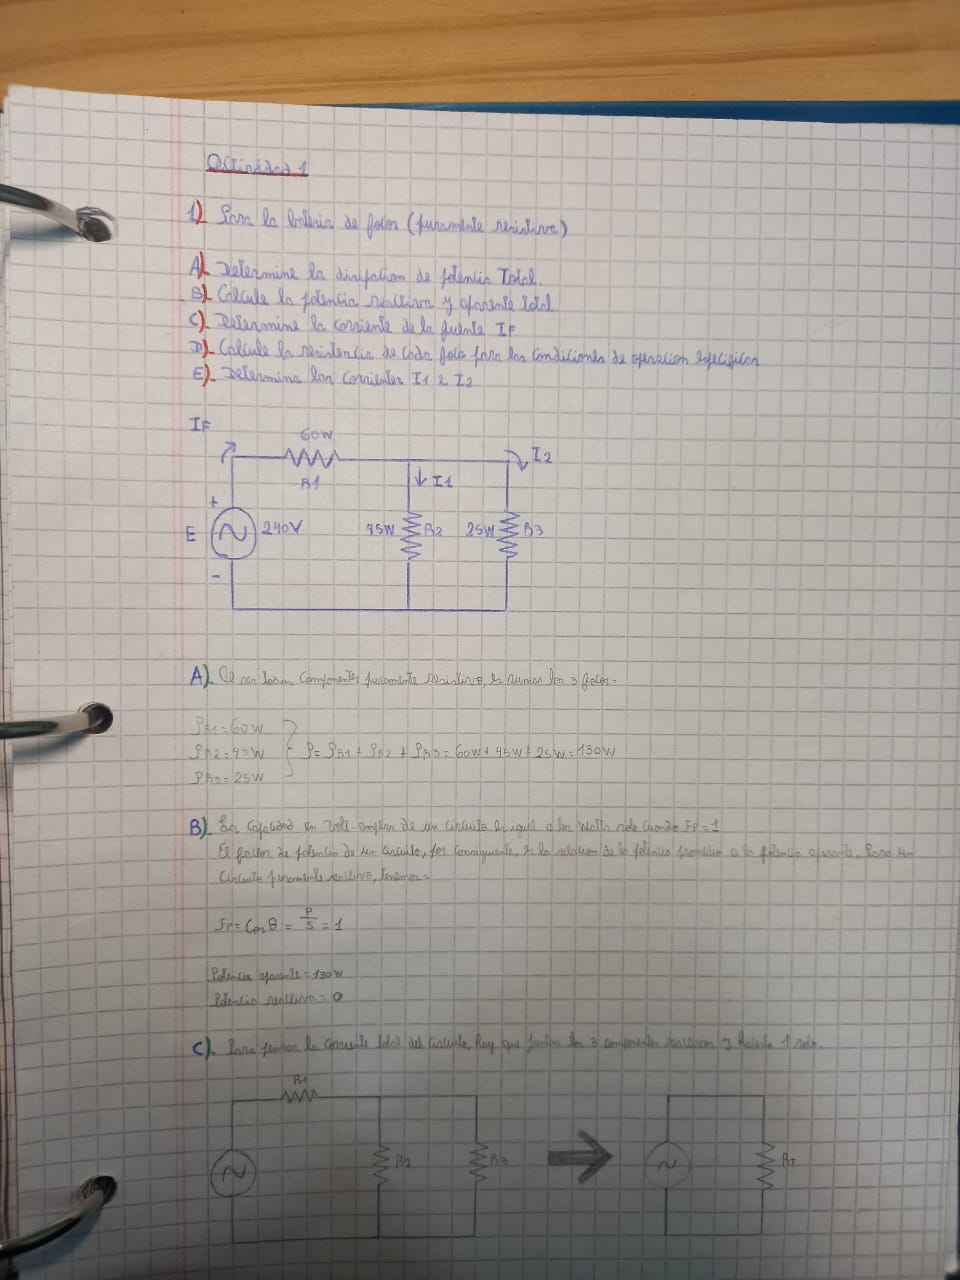 Actividad 1
1) Para la bateria de focos (puramente resistiva)
A). Determine la disipacion de potencia Total.
B). Calcule la potencia reactiva y aparente total.
C). Determine la corriente de la fuente IF
D). Calcule la resistencia de cada foco para las condiciones de operacion especificas
E). Determina las corrientes I1 e I2
IF
60W
R1
I1
I2
+
E
240V
45W
R2
25W
R3
-
A). Al ser componentes puramente resistivos, se suman los 3 focos.
PR1=60W
PR2=45W
P= PR1 + PR2 + PR3 = 60W + 45W + 25W = 130W
PR3=25W
B). La capacidad en Volt-amper de un circuito es igual a los Watts solo cuando FP=1
El factor de potencia de un circuito, por consiguiente, es la relacion de la potencia promedio a la potencia aparente. Para un
circuito puramente reactivo, tenemos:
FP= Cos θ = P/S = 1
Potencia aparente = 130W
Potencia reactiva = 0
C). Para la corriente total del circuito, hay que juntar los 3 componentes 1 solo.
R1
R2
R3
RT